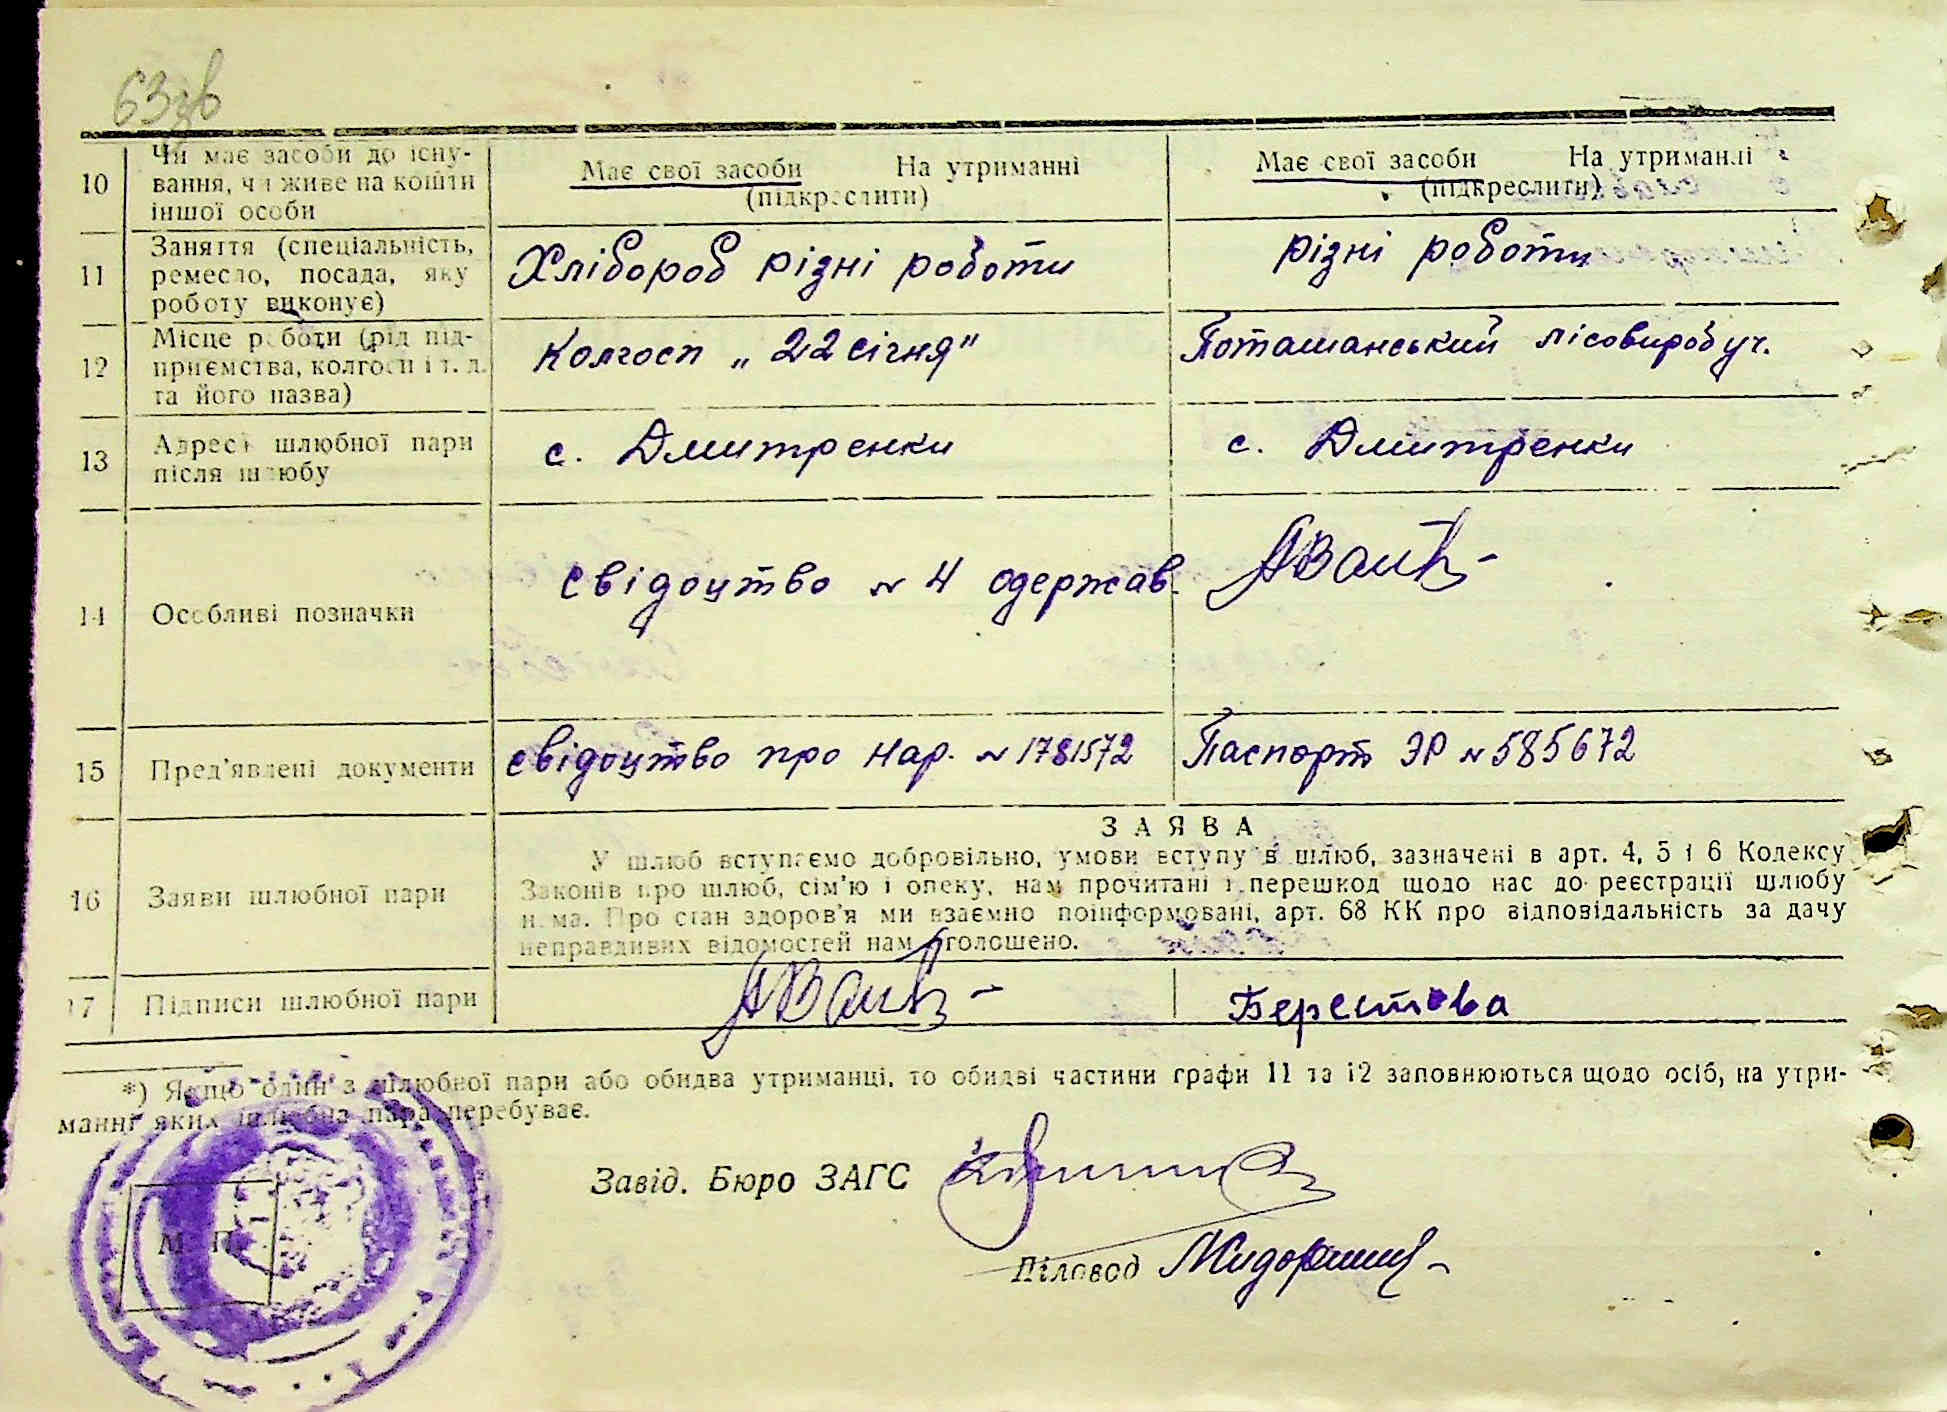 63зв
10 Чи має засоби до існу-
вання, чи живе на кошти
іншої особи
Має свої засоби На утриманні
(підкреслити)
Має свої засоби На утриманні
(підкреслити)
11 Заняття (спеціальність,
ремесло, посада, яку
роботу виконує)
Хлібороб різні роботи
різні роботи
12 Місце роботи (рід під-
приємства, колгосп і т. д.
та його назва)
Колгосп „22 січня"
Поташанський лісовиробуч.
13 Адреса шлюбної пари
після шлюбу
с. Дмитренки
с. Дмитренки
14 Особливі позначки
Свідоцтво № 4 одержав.
15 Пред'явлені документи
Свідоцтво про нар. № 1781572
Паспорт ЭР № 585672
16 Заяви шлюбної пари
ЗАЯВА
У шлюб вступаємо добровільно, умови вступу в шлюб, зазначені в арт. 4, 5 і 6 Кодексу
Законів про шлюб, сім'ю і опеку, нам прочитані і перешкод щодо нас до реєстрації шлюбу
нема. Про стан здоров'я ми взаємно поінформовані, арт. 68 КК про відповідальність за дачу
неправдивих відомостей нам оголошено.
17 Підписи шлюбної пари
Берестова
*) Якщо один з шлюбної пари або обидва утриманці, то обидві частини графи 11 та 12 заповнюються щодо осіб, на утри-
манні яких шлюбна пара перебуває.
Завід. Бюро ЗАГС
М П
Діловод